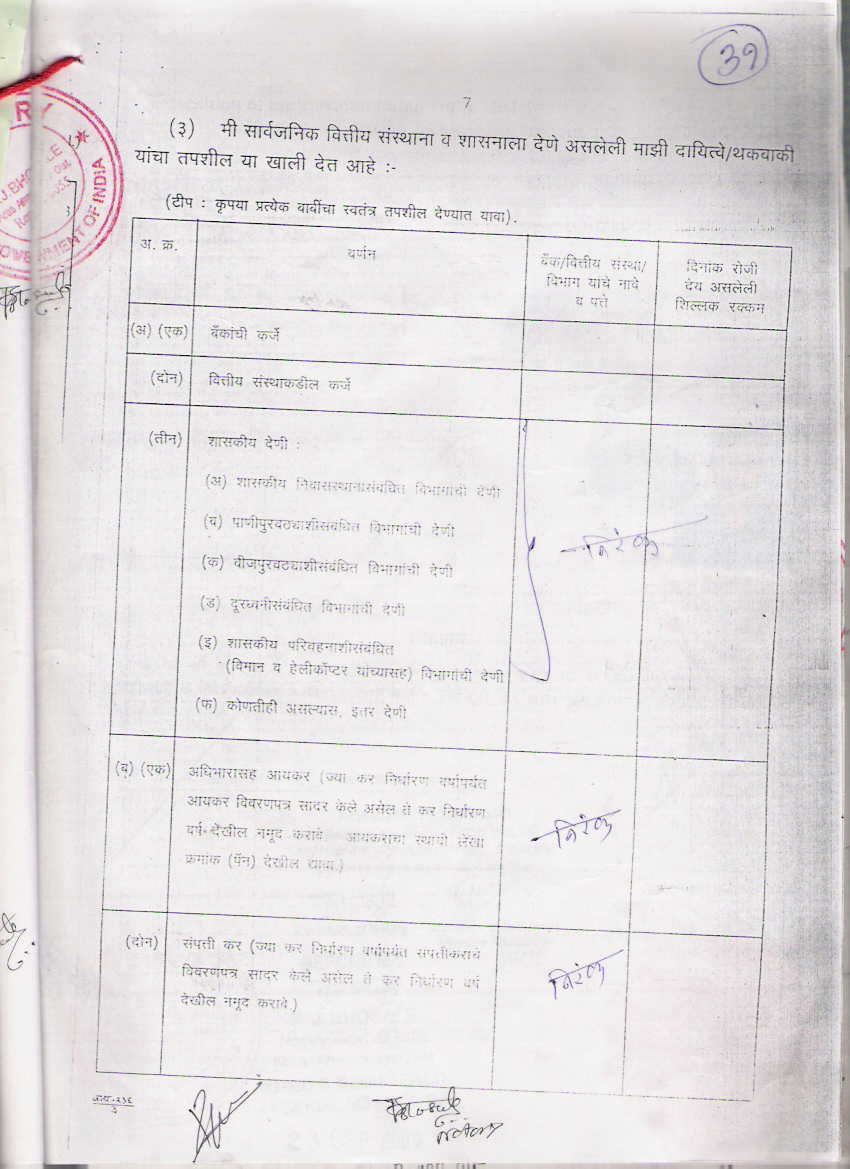 39
7
(३) मी सार्वजनिक वित्तीय संस्थाना व शासनाला देणे असलेली माझी दायित्वे/थकबाकी
यांचा तपशील या खाली देत आहे :-
(टीप : कृपया प्रत्येक बाबींचा स्वतंत्र तपशील देण्यात यावा).
अ. क्र.
वर्णन
बँक/वित्तीय संस्था/
विभाग यांचे नावे
व पत्ते
दिनांक रोजी
देय असलेली
शिल्लक रक्कम
(अ) (एक) बँकांची कर्जे
(दोन) वित्तीय संस्थाकडील कर्जे
(तीन) शासकीय देणी :
(अ) शासकीय निवासस्थानासंबंधित विभागांची देणी
(ब) पाणीपुरवठ्याशीसंबंधित विभागांची देणी
निरंक
(क) वीजपुरवठ्याशीसंबंधित विभागांची देणी
(ड) दूरध्वनीसंबंधित विभागांची देणी
(इ) शासकीय परिवहनाशीसंबंधित
(विमान व हेलीकॉप्टर यांच्यासह) विभागांची देणी
(फ) कोणतीही असल्यास, इतर देणी
(ब) (एक) अधिभारासह आयकर (ज्या कर निर्धारण वर्षापर्यंत
आयकर विवरणपत्र सादर केले असेल ते कर निर्धारण
वर्ष देखील नमूद करावे. आयकराचा स्थायी लेखा
क्रमांक (पॅन) देखील द्यावा.)
निरंक
(दोन) संपत्ती कर (ज्या कर निर्धारण वर्षापर्यंत संपत्तीकराचे
विवरणपत्र सादर केले असेल ते कर निर्धारण वर्ष
देखील नमूद करावे.)
निरंक
GOVERNMENT OF INDIA
Notary